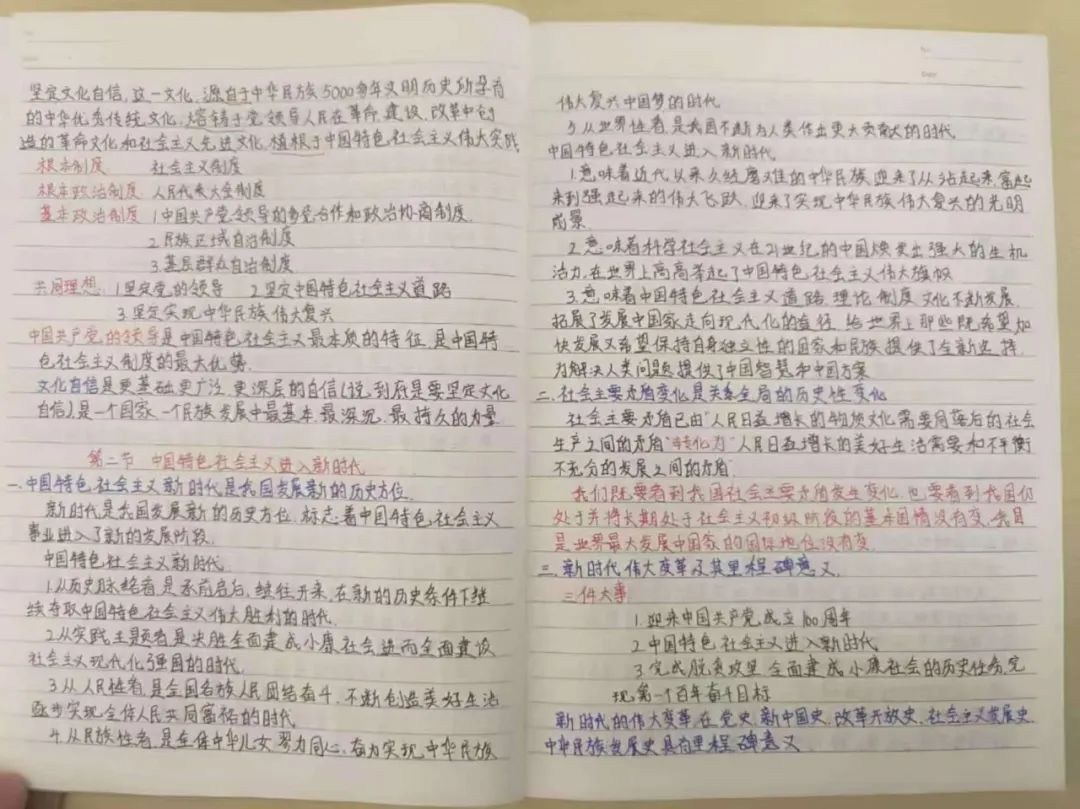 坚定文化自信,这一文化,源自于中华民族5000多年文明历史所孕育
的中华优秀传统文化,熔铸于党领导人民在革命、建设、改革中创
造的革命文化和社会主义先进文化,植根于中国特色社会主义伟大实践
根本制度 社会主义制度
根本政治制度 人民代表大会制度
基本政治制度 1.中国共产党领导的多党合作和政治协商制度
2.民族区域自治制度
3.基层群众自治制度
共同理想: 1.坚定党的领导 2.坚定中国特色社会主义道路
3.坚定实现中华民族伟大复兴
中国共产党的领导是中国特色社会主义最本质的特征,是中国特
色社会主义制度的最大优势.
文化自信是更基础、更广泛、更深层的自信(说到底是要坚定文化
自信),是一个国家、一个民族发展中最基本、最深沉、最持久的力量
第二节 中国特色社会主义进入新时代
一.中国特色社会主义新时代是我国发展新的历史方位.
新时代是我国发展新的历史方位,标志着中国特色社会主义
事业进入了新的发展阶段.
中国特色社会主义新时代.
1.从历史脉络看是承前启后,继往开来,在新的历史条件下继
续夺取中国特色社会主义伟大胜利的时代.
2.从实践主题看是决胜全面建成小康社会进而全面建设
社会主义现代化强国的时代.
3.从人民性看,是全国各族人民团结奋斗,不断创造美好生活
逐步实现全体人民共同富裕的时代
4.从民族性看,是全体中华儿女勠力同心,奋力实现中华民族
伟大复兴中国梦的时代
5.从世界性看是我国不断为人类作出更大贡献大的时代
中国特色社会主义进入新时代
1.意味着近代以来久经磨难的中华民族迎来了从站起来,富起
来到强起来的伟大飞跃,迎来了实现中华民族伟大复兴的光明
成景
2.意味着科学社会主义在21世纪的中国焕发出强大的生机
活力,在世界上高高举起了中国特色社会主义伟大旗帜
3.意味着中国特色社会主义道路、理论、制度、文化不断发展,
拓展了发展中国家走向现代化的途径,给世界上那些既希望加
快发展又希望保持自身独立性的国家和民族提供了全新选择,
为解决人类问题提供了中国智慧和中国方案
二.社会主要矛盾变化是关系全局的历史性变化
社会主要矛盾已由"人民日益增长的物质文化需要同落后的社会
生产之间的矛盾"转化为"人民日益增长的美好生活需要和不平衡
不充分的发展之间的矛盾"
我们既要看到我国社会主要矛盾发生变化,也要看到我国仍
处于并将长期处于社会主义初级阶段的基本国情没有变,我国
是世界最大发展中国家的国际地位没有变.
三.新时代伟大变革及其里程碑意义.
三件大事
1.迎来中国共产党成立100周年
2.中国特色社会主义进入新时代
3.完成脱贫攻坚全面建成小康社会的历史任务,完
现第一个百年奋斗目标
新时代的伟大变革,在党史、新中国史、改革开放史、社会主义发展史、
中华民族发展史具有里程碑意义